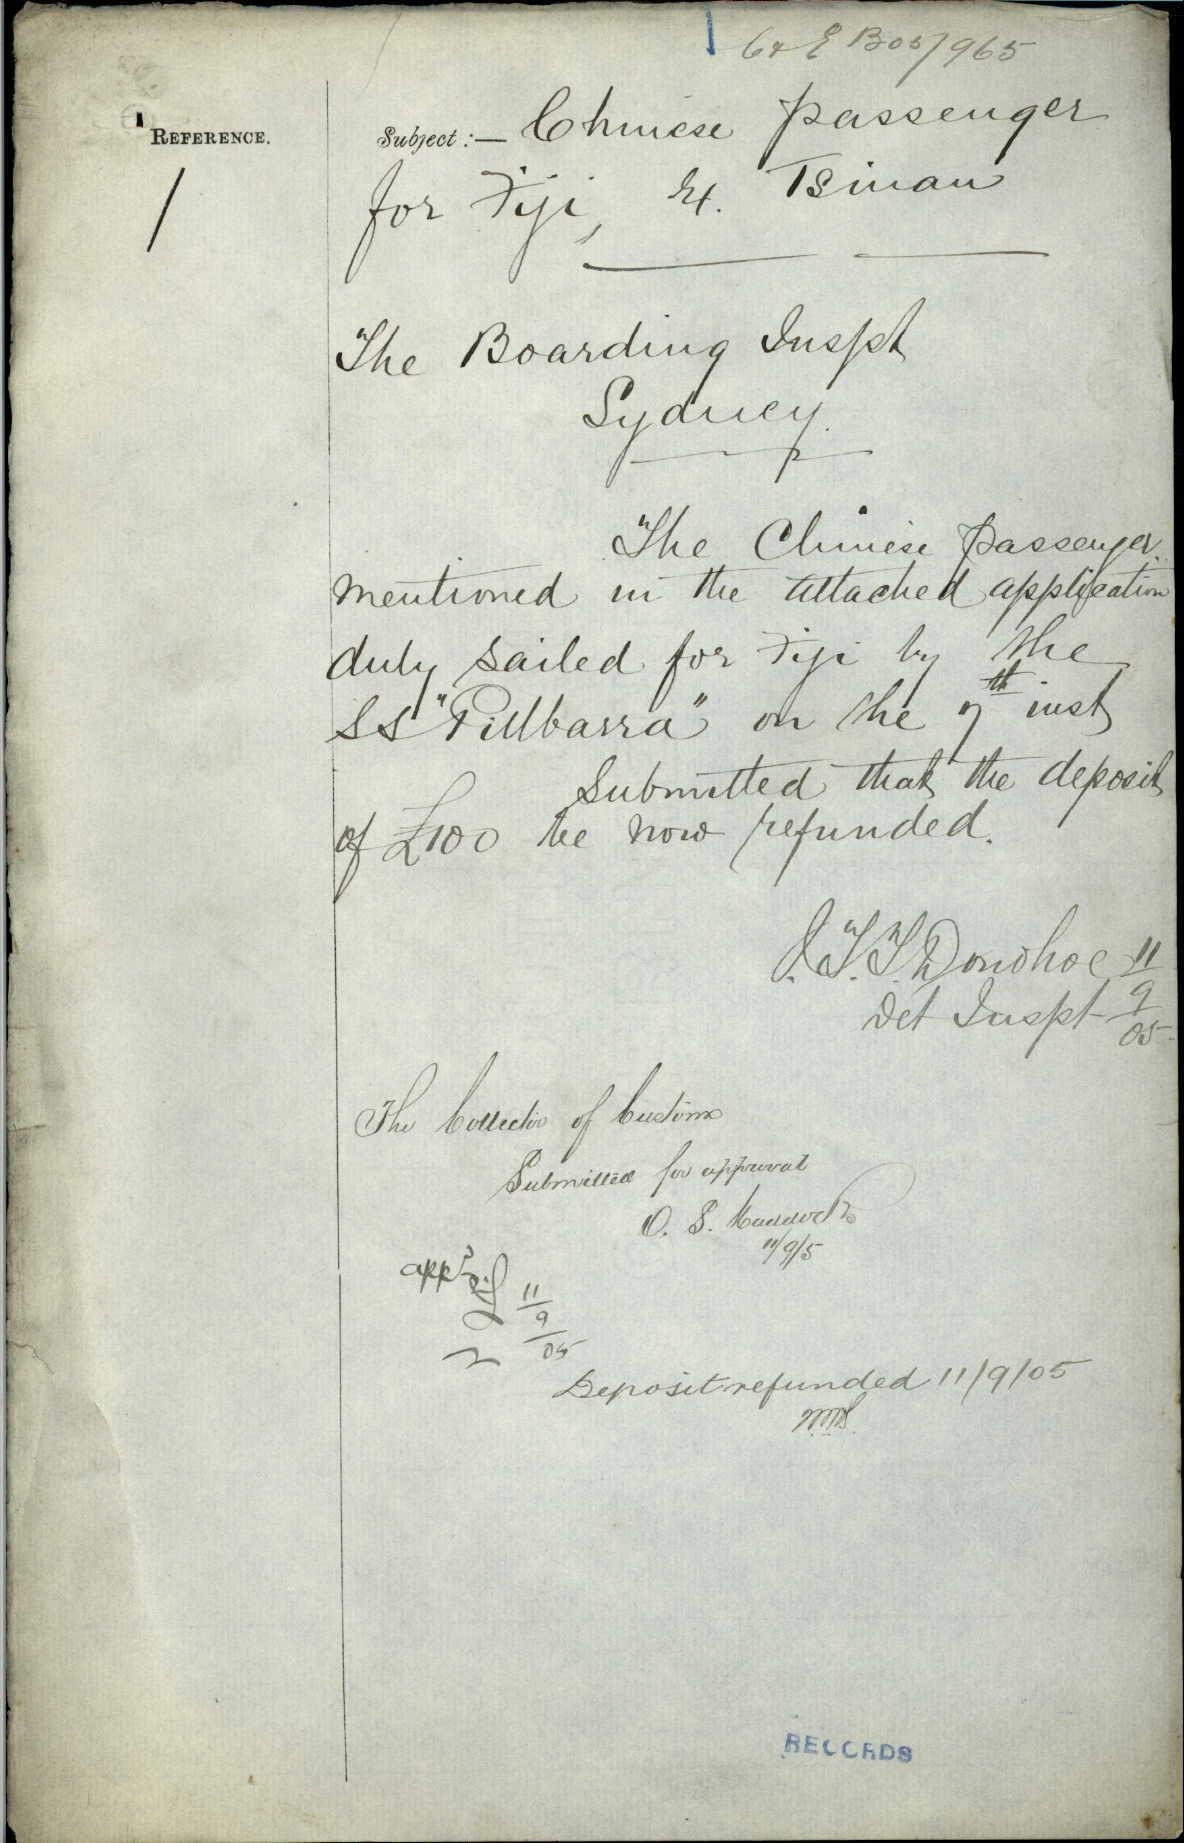 C & E B05/965
REFERENCE.
1
Subject:— Chinese passenger
for Fiji, Ex. Tsinan
The Boarding Inspt
Sydney.
The Chinese passenger
mentioned in the attached application
duly sailed for Fiji by the
SS "Pillbarra" on the 7th inst
Submitted that the deposit
of £100 be now refunded.
J.T.T. Donohoe 11/9/05
Det Inspt
The Collector of Customs
Submitted for approval
O. S. Maddocks
11/9/5
appd
11/9/05
Deposit refunded 11/9/05
RECORDS